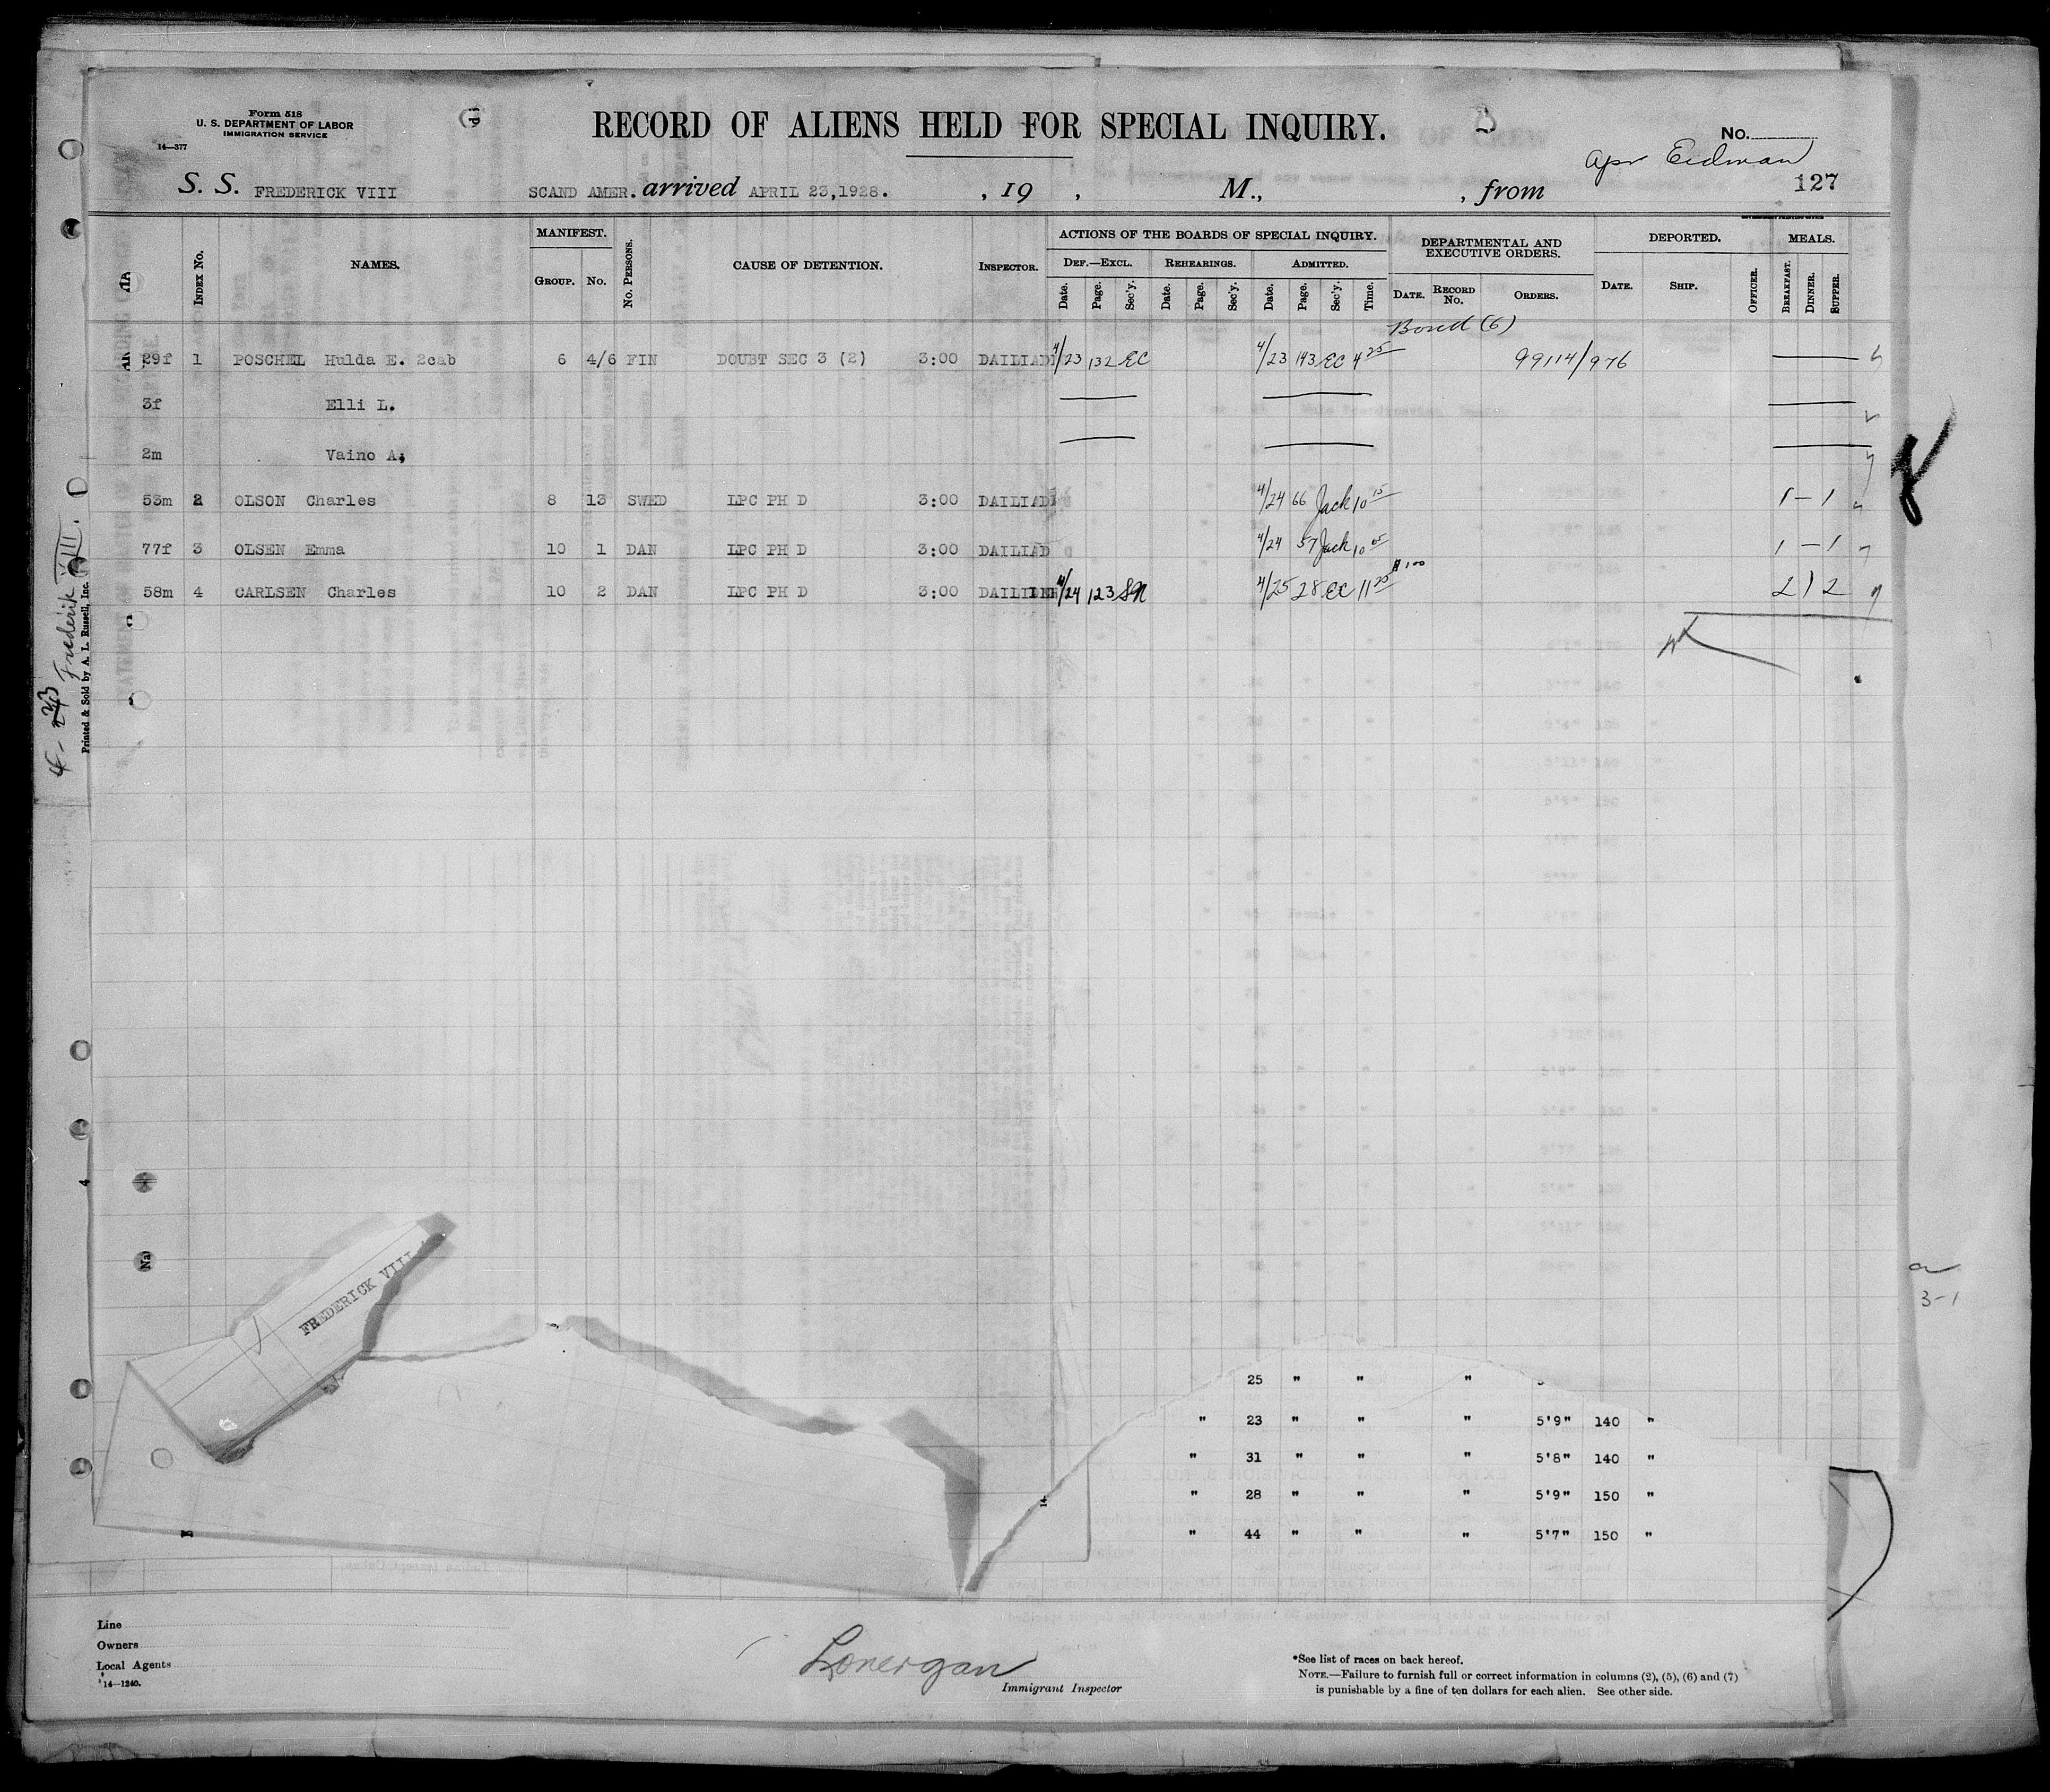 Form 518
U. S. DEPARTMENT OF LABOR
IMMIGRATION SERVICE
14—377
RECORD OF ALIENS HELD FOR SPECIAL INQUIRY.
No.
Apr Eidman
127
S. S. FREDERICK VIII SCAND AMER. arrived APRIL 23,1928. , 19 , M., , from
INDEX No. NAMES. MANIFEST. GROUP. No. No. PERSONS. CAUSE OF DETENTION. INSPECTOR. ACTIONS OF THE BOARDS OF SPECIAL INQUIRY. DEPARTMENTAL AND EXECUTIVE ORDERS. DEPORTED. MEALS.
DEF.—EXCL. REHEARINGS. ADMITTED.
Date. Page. Sec'y. Date. Page. Sec'y. Date. Page. Sec'y. Time. DATE. RECORD No. ORDERS. DATE. SHIP. OFFICER. BREAKFAST. DINNER. SUPPER.
Bond (6)
29f 1 POSCHEL Hulda E. 2cab 6 4/6 FIN DOUBT SEC 3 (2) 3:00 DAILIAD 4/23 132 EC 4/23 143 EC 4 25 99114/976
3f Elli L.
2m Vaino A.
53m 2 OLSON Charles 8 13 SWED LPC PH D 3:00 DAILIAD 4/24 66 Jack 10 15 1 — 1
77f 3 OLSEN Emma 10 1 DAN LPC PH D 3:00 DAILIAD 4/24 57 Jack 10 05 1 — 1
$100
58m 4 CARLSEN Charles 10 2 DAN LPC PH D 3:00 4/24 123 SN 4/25 28 EC 11 25 2 1 2
4-23 Frederik VIII.
Printed & Sold by A. L. Russell, Inc.
FREDERICK VIII
3-1
25 " " "
" 23 " " " 5'9" 140 "
" 31 " " " 5'8" 140 "
" 28 " " " 5'9" 150 "
" 44 " " " 5'7" 150 "
Line
Owners
Local Agents
14—1240.
Lonergan
Immigrant Inspector
*See list of races on back hereof.
NOTE.—Failure to furnish full or correct information in columns (2), (5), (6) and (7)
is punishable by a fine of ten dollars for each alien. See other side.